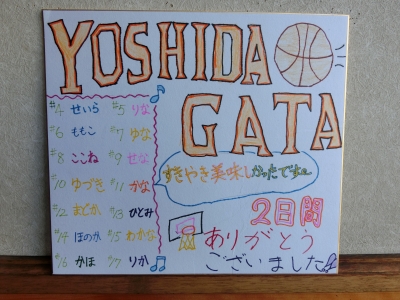 YOSHIDA
GATA
#4 せいら #5 りな
#6 ももこ #7 ゆな
#8 ここね #9 せな
#10 ゆづき #11 かな
#12 まどか #13 ひとみ
#14 ほのか #15 わかな
#16 かほ #17 りか
すきやき美味しかったです。
2日間
ありがとう
ございました